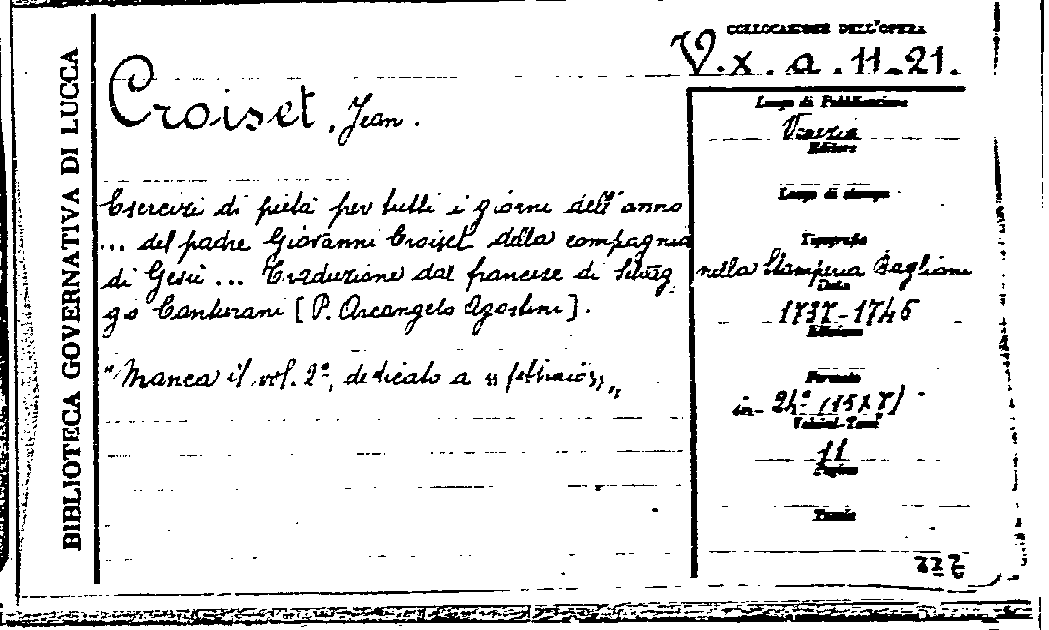 BIBLIOTECA GOVERNATIVA DI LUCCA
COLLOCAZIONE DELL'OPERA
V. x. a. 11-21.
Croiset, Jean.
Esercizi di pietà per tutti i giorni dell'anno
... del padre Giovanni Croiset della compagnia
di Gesù ... Traduzione dal francese di Selvag
gio Canturani [P. Arcangelo Agostini].
"Manca il vol. 2º, dedicato a «febbraio»„
Luogo di Pubblicazione
Venezia
Editore
Luogo di stampa
Tipografia
nella Stamperia Baglioni
Data
1737-1746
Edizione
Formato
in-24º (15x7)
Volumi-Tomi
11
Pagine
Tavole